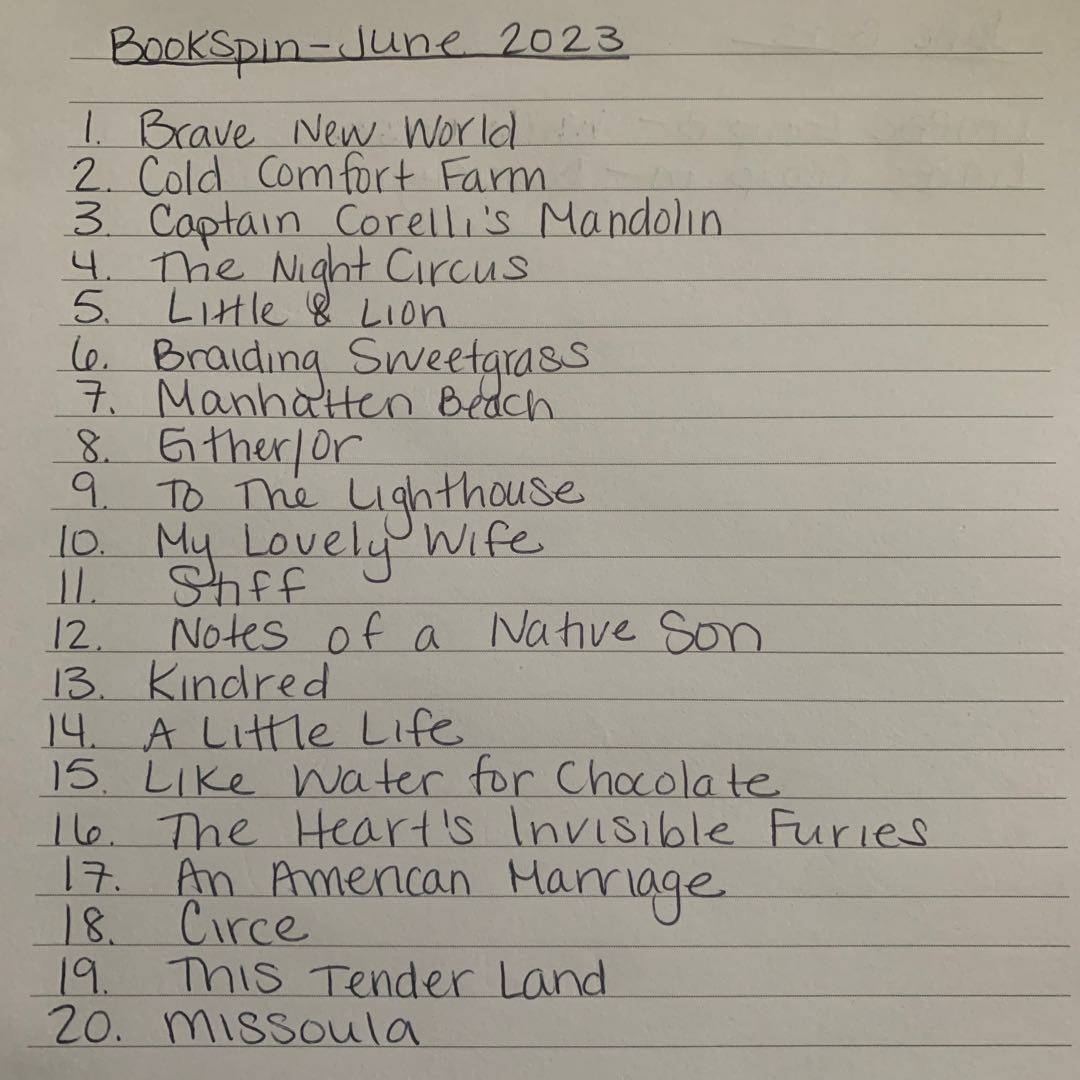 Bookspin-June 2023
1. Brave New World
2. Cold Comfort Farm
3. Captain Corelli's Mandolin
4. The Night Circus
5. Little & Lion
6. Braiding Sweetgrass
7. Manhatten Beach
8. Either/Or
9. To The Lighthouse
10. My Lovely Wife
11. Stiff
12. Notes of a Native Son
13. Kindred
14. A Little Life
15. Like Water for Chocolate
16. The Heart's Invisible Furies
17. An American Marriage
18. Circe
19. This Tender Land
20. Missoula